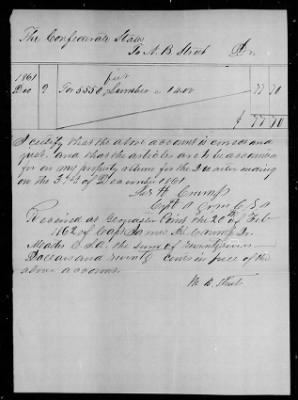 The Confederate States
To N. B. Street Dr.
1861
feet
Dec 9 For 5550 Lumber @ 1400 77 70
$ 77 70
I certify that the above account is correct and
just: and that the articles are to be accounted
for on my property return for the Quarter ending
on the 31st of December 1861
Jas H
Capt A
Received at the 20 of Feb
1862 of Capt James H. Qr
Master C.S.A. the sum of seventy seven
Dollars and seventy cents in full of the
above account.
N. B. Street